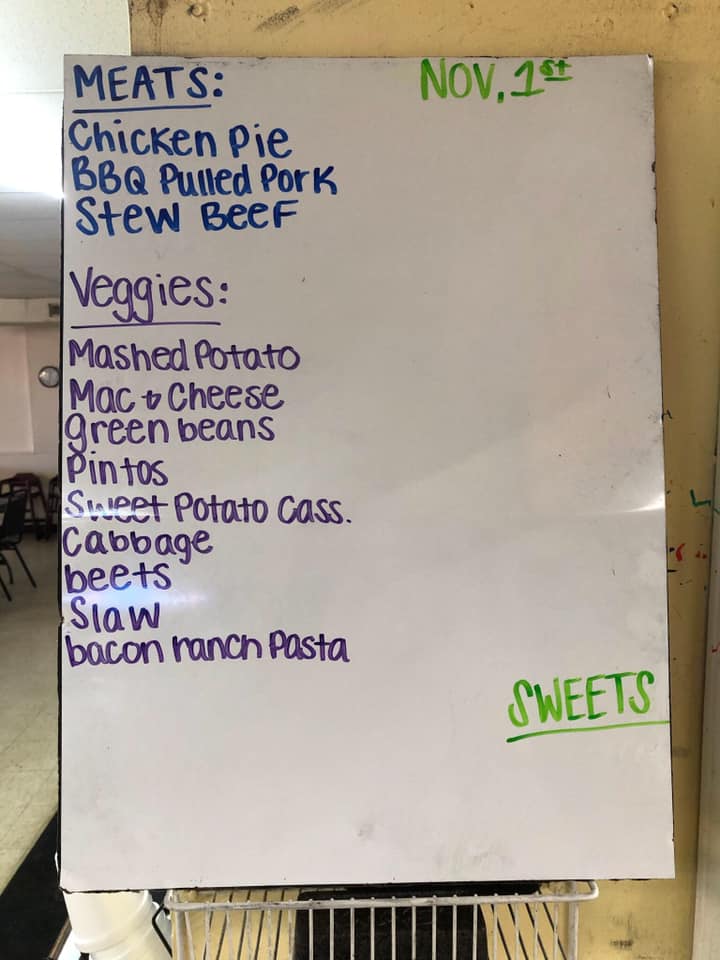 MEATS:
NOV. 1st
Chicken Pie
BBQ Pulled Pork
Stew Beef
Veggies:
Mashed Potato
Mac & Cheese
green beans
Pintos
Sweet Potato Cass.
Cabbage
beets
Slaw
bacon ranch Pasta
SWEETS